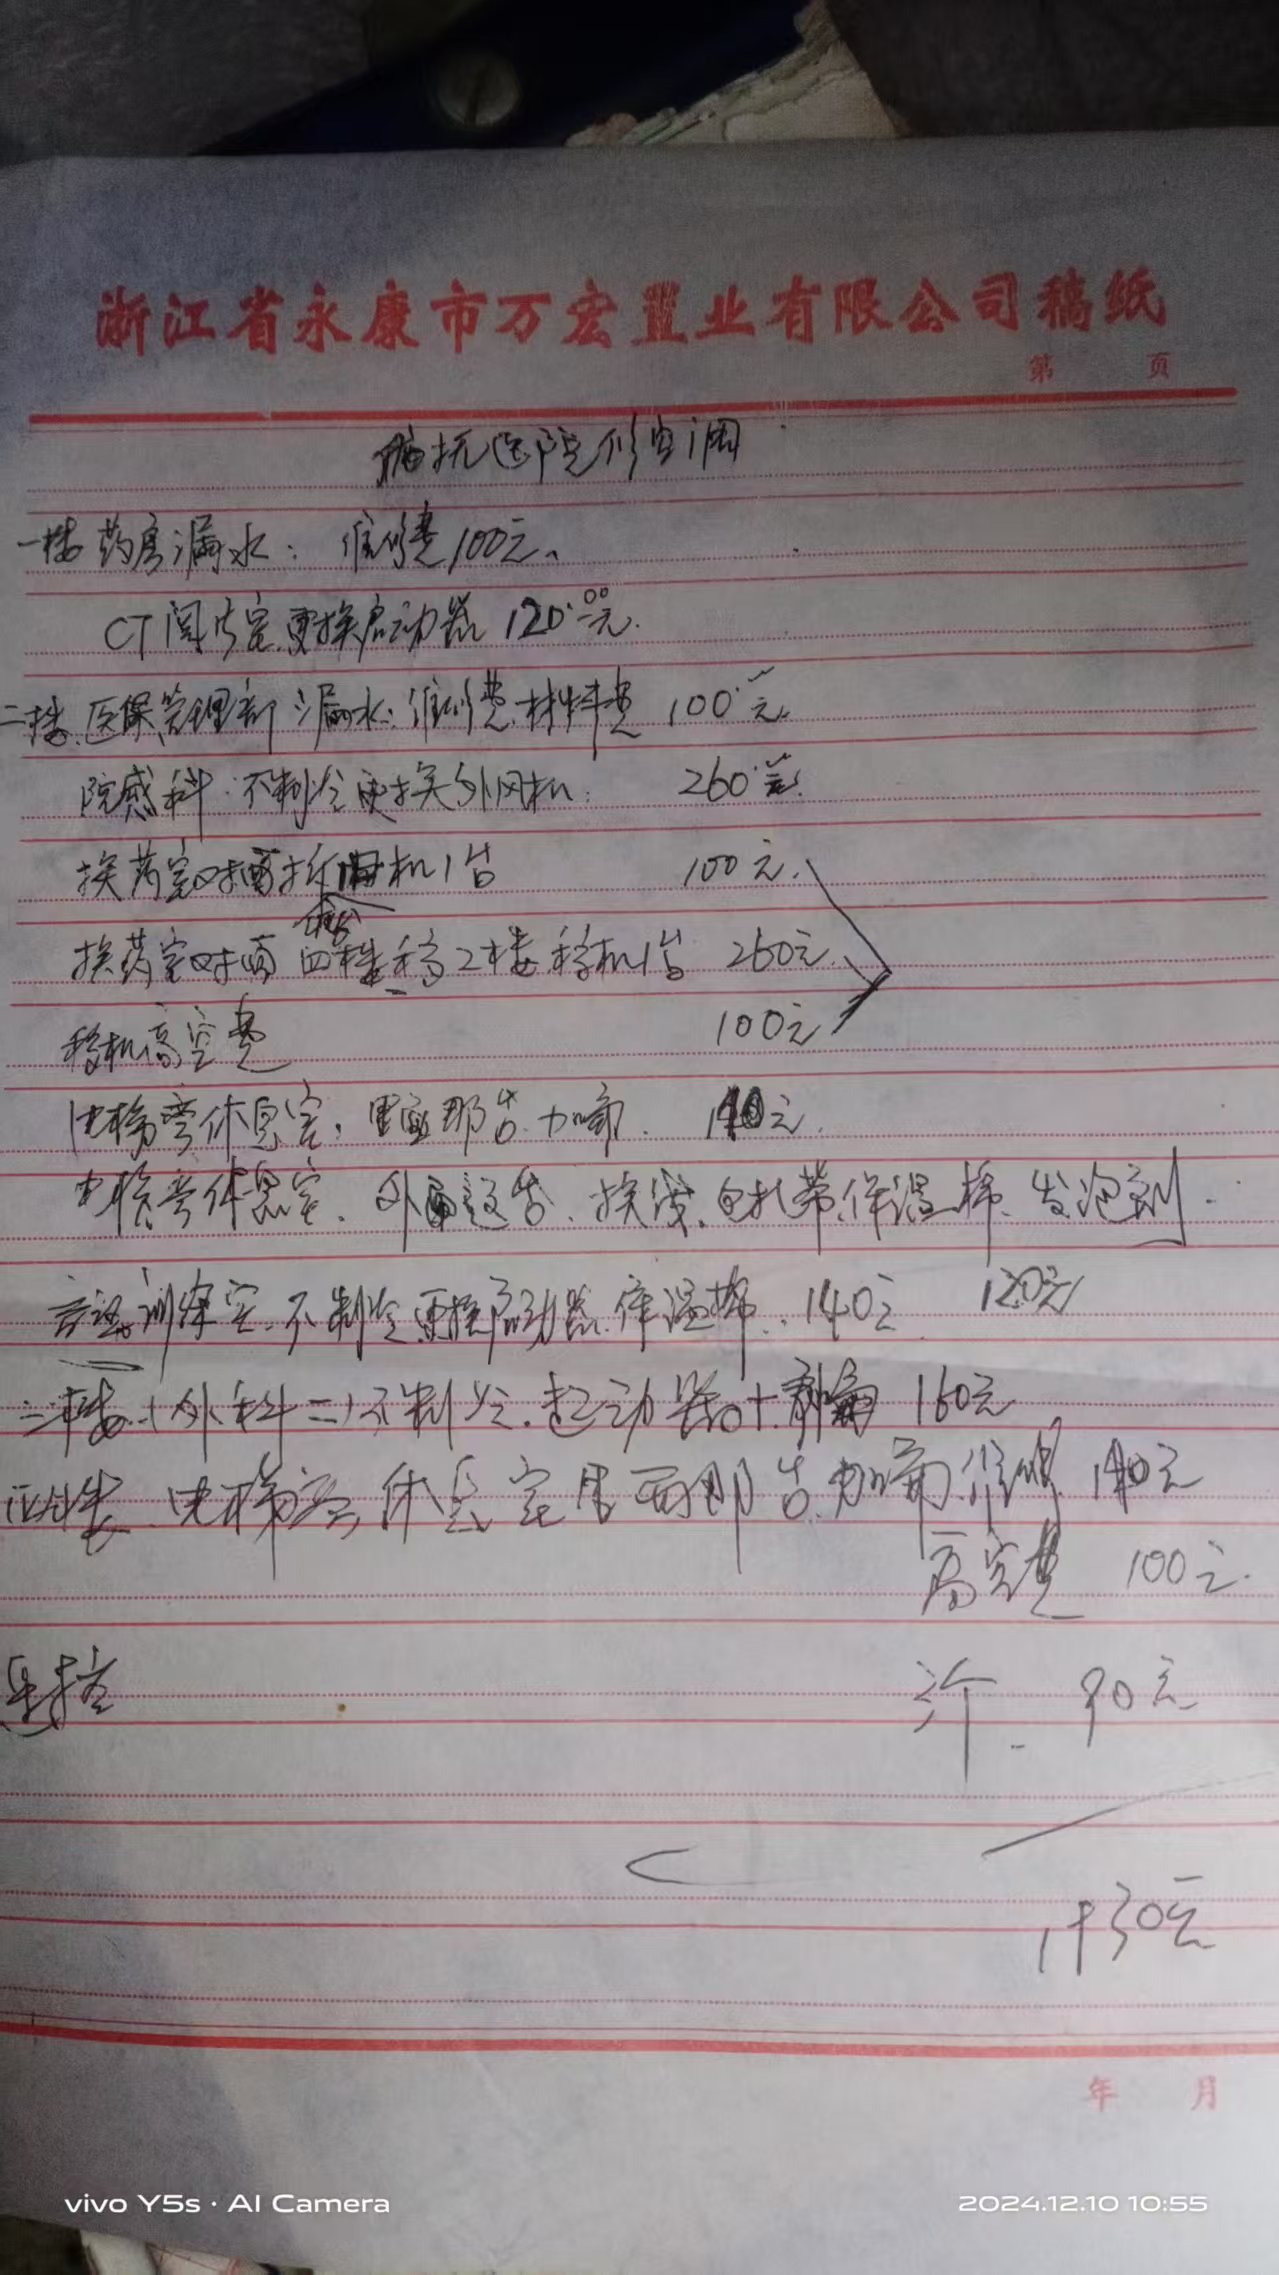 浙江省永康市万宏置业有限公司稿纸
第 页
医院修空调
一楼药房漏水：维修费100元、
CT阅片室更换启动器 120.00元.
二楼.医保管理部漏水.维修费.材料费 100元.
院感科.不制冷更换外风机： 260元.
换药室对面拆机1台 100元.
换药室对面四楼移2楼移机1台 260元.
移机高空费 100元
电梯旁休息室，里面那台.加 元.
电梯旁休息室.外面这台.换线.包扎带.保温棉、发泡剂.
120元
言语训练室.不制冷更换启动器.保温棉. 140元
三楼.(外科二)不制冷.起动器+ 160元
四楼.电梯旁休息室里面那台.加 维修 元
高空费 100元.
遥控
3个. 90元
年 月
vivo Y5s · AI Camera
2024.12.10 10:55